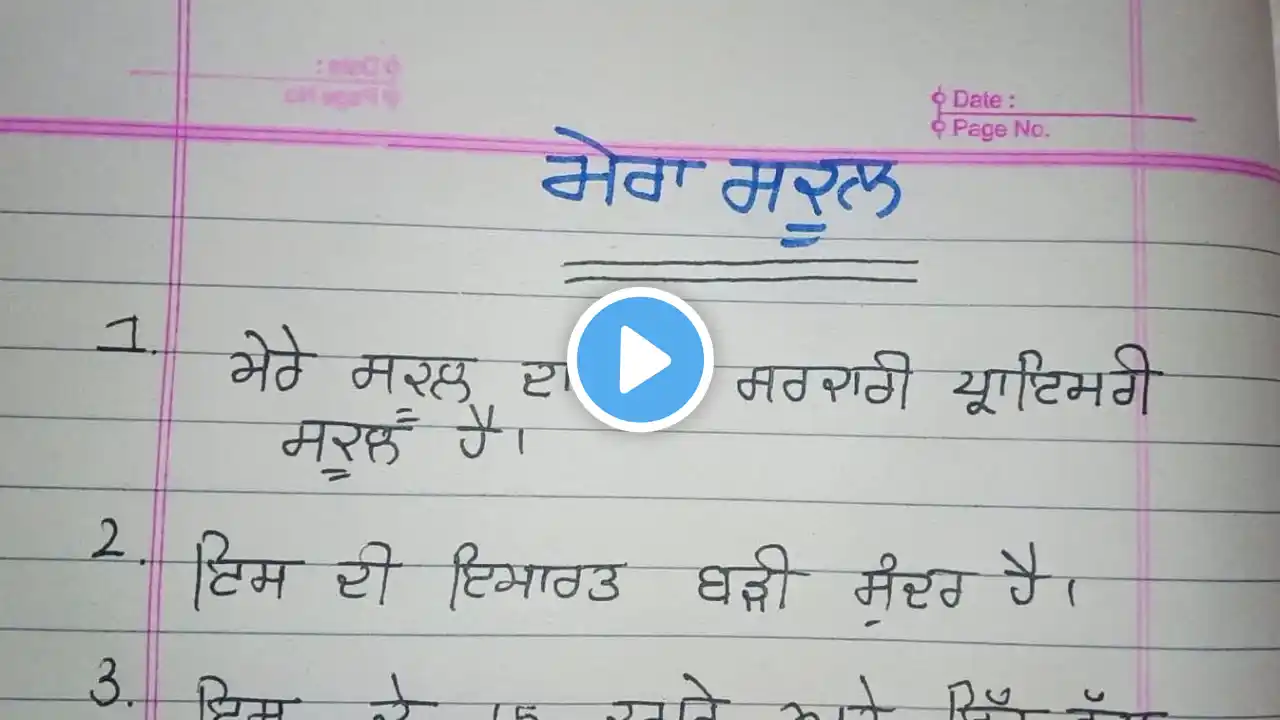 Date :
Page No.
ਮੇਰਾ ਸਕੂਲ
1. ਮੇਰੇ ਸਕੂਲ ਦਾ ਸਰਕਾਰੀ ਪ੍ਰਾਇਮਰੀ
ਸਕੂਲ ਹੈ।
2. ਇਸ ਦੀ ਇਮਾਰਤ ਬੜੀ ਸੁੰਦਰ ਹੈ।
3. ਇਸ ਦੇ 15 ਕਮਰੇ ਅਤੇ